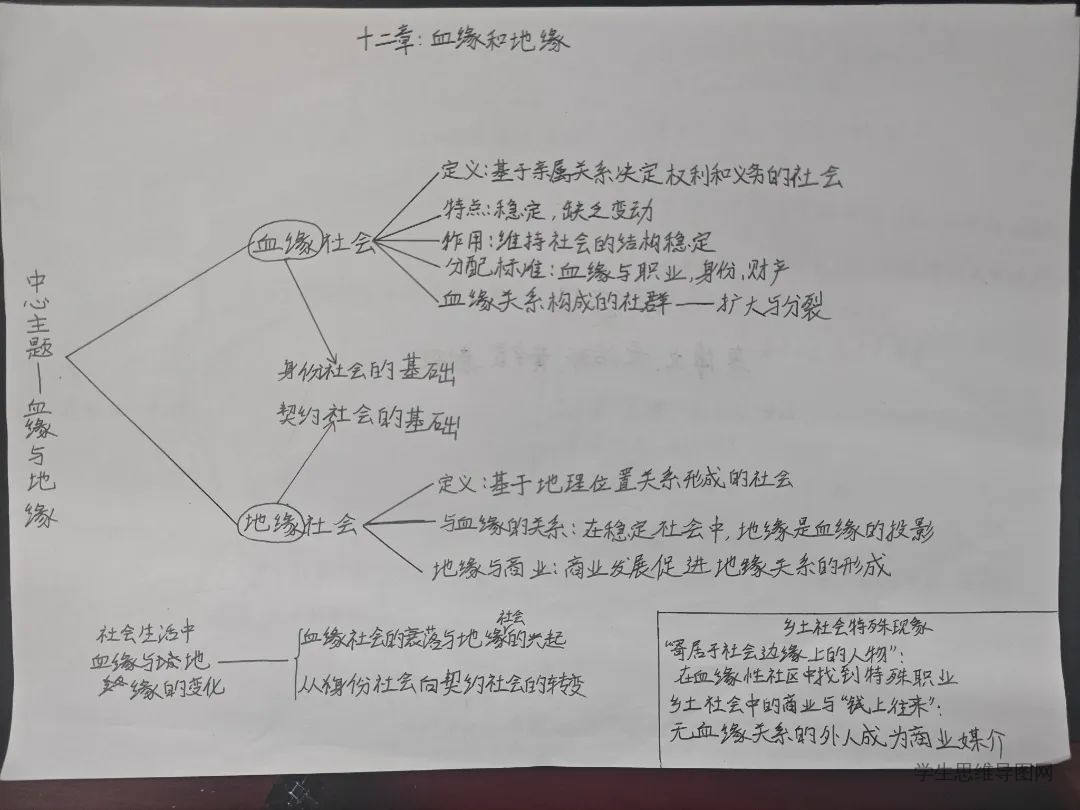 十二章：血缘和地缘
中心主题—血缘与地缘
血缘社会
定义：基于亲属关系决定权利和义务的社会
特点：稳定，缺乏变动
作用：维持社会的结构稳定
分配标准：血缘与职业，身份，财产
血缘关系构成的社群——扩大与分裂
身份社会的基础
契约社会的基础
地缘社会
定义：基于地理位置关系形成的社会
与血缘的关系：在稳定社会中，地缘是血缘的投影
地缘与商业：商业发展促进地缘关系的形成
社会生活中
血缘与地
缘的变化
社会
血缘社会的衰落与地缘的兴起
从身份社会向契约社会的转变
乡土社会特殊现象
“寄居于社会边缘上的人物”：
在血缘性社区中找到特殊职业
乡土社会中的商业与“钱上往来”：
无血缘关系的外人成为商业媒介
学生思维导图网